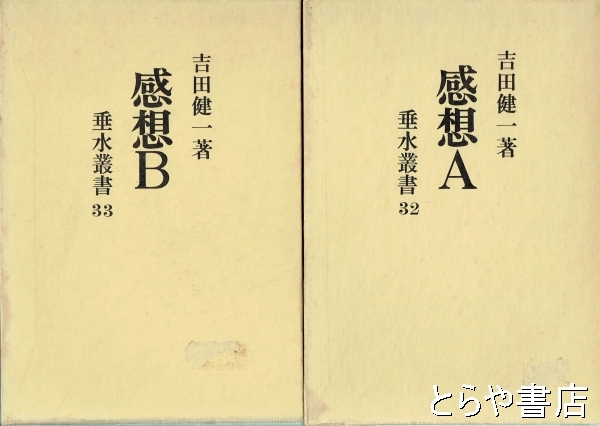 吉田健一著
感想A
垂水叢書 32
吉田健一著
感想B
垂水叢書 33
とらや書店